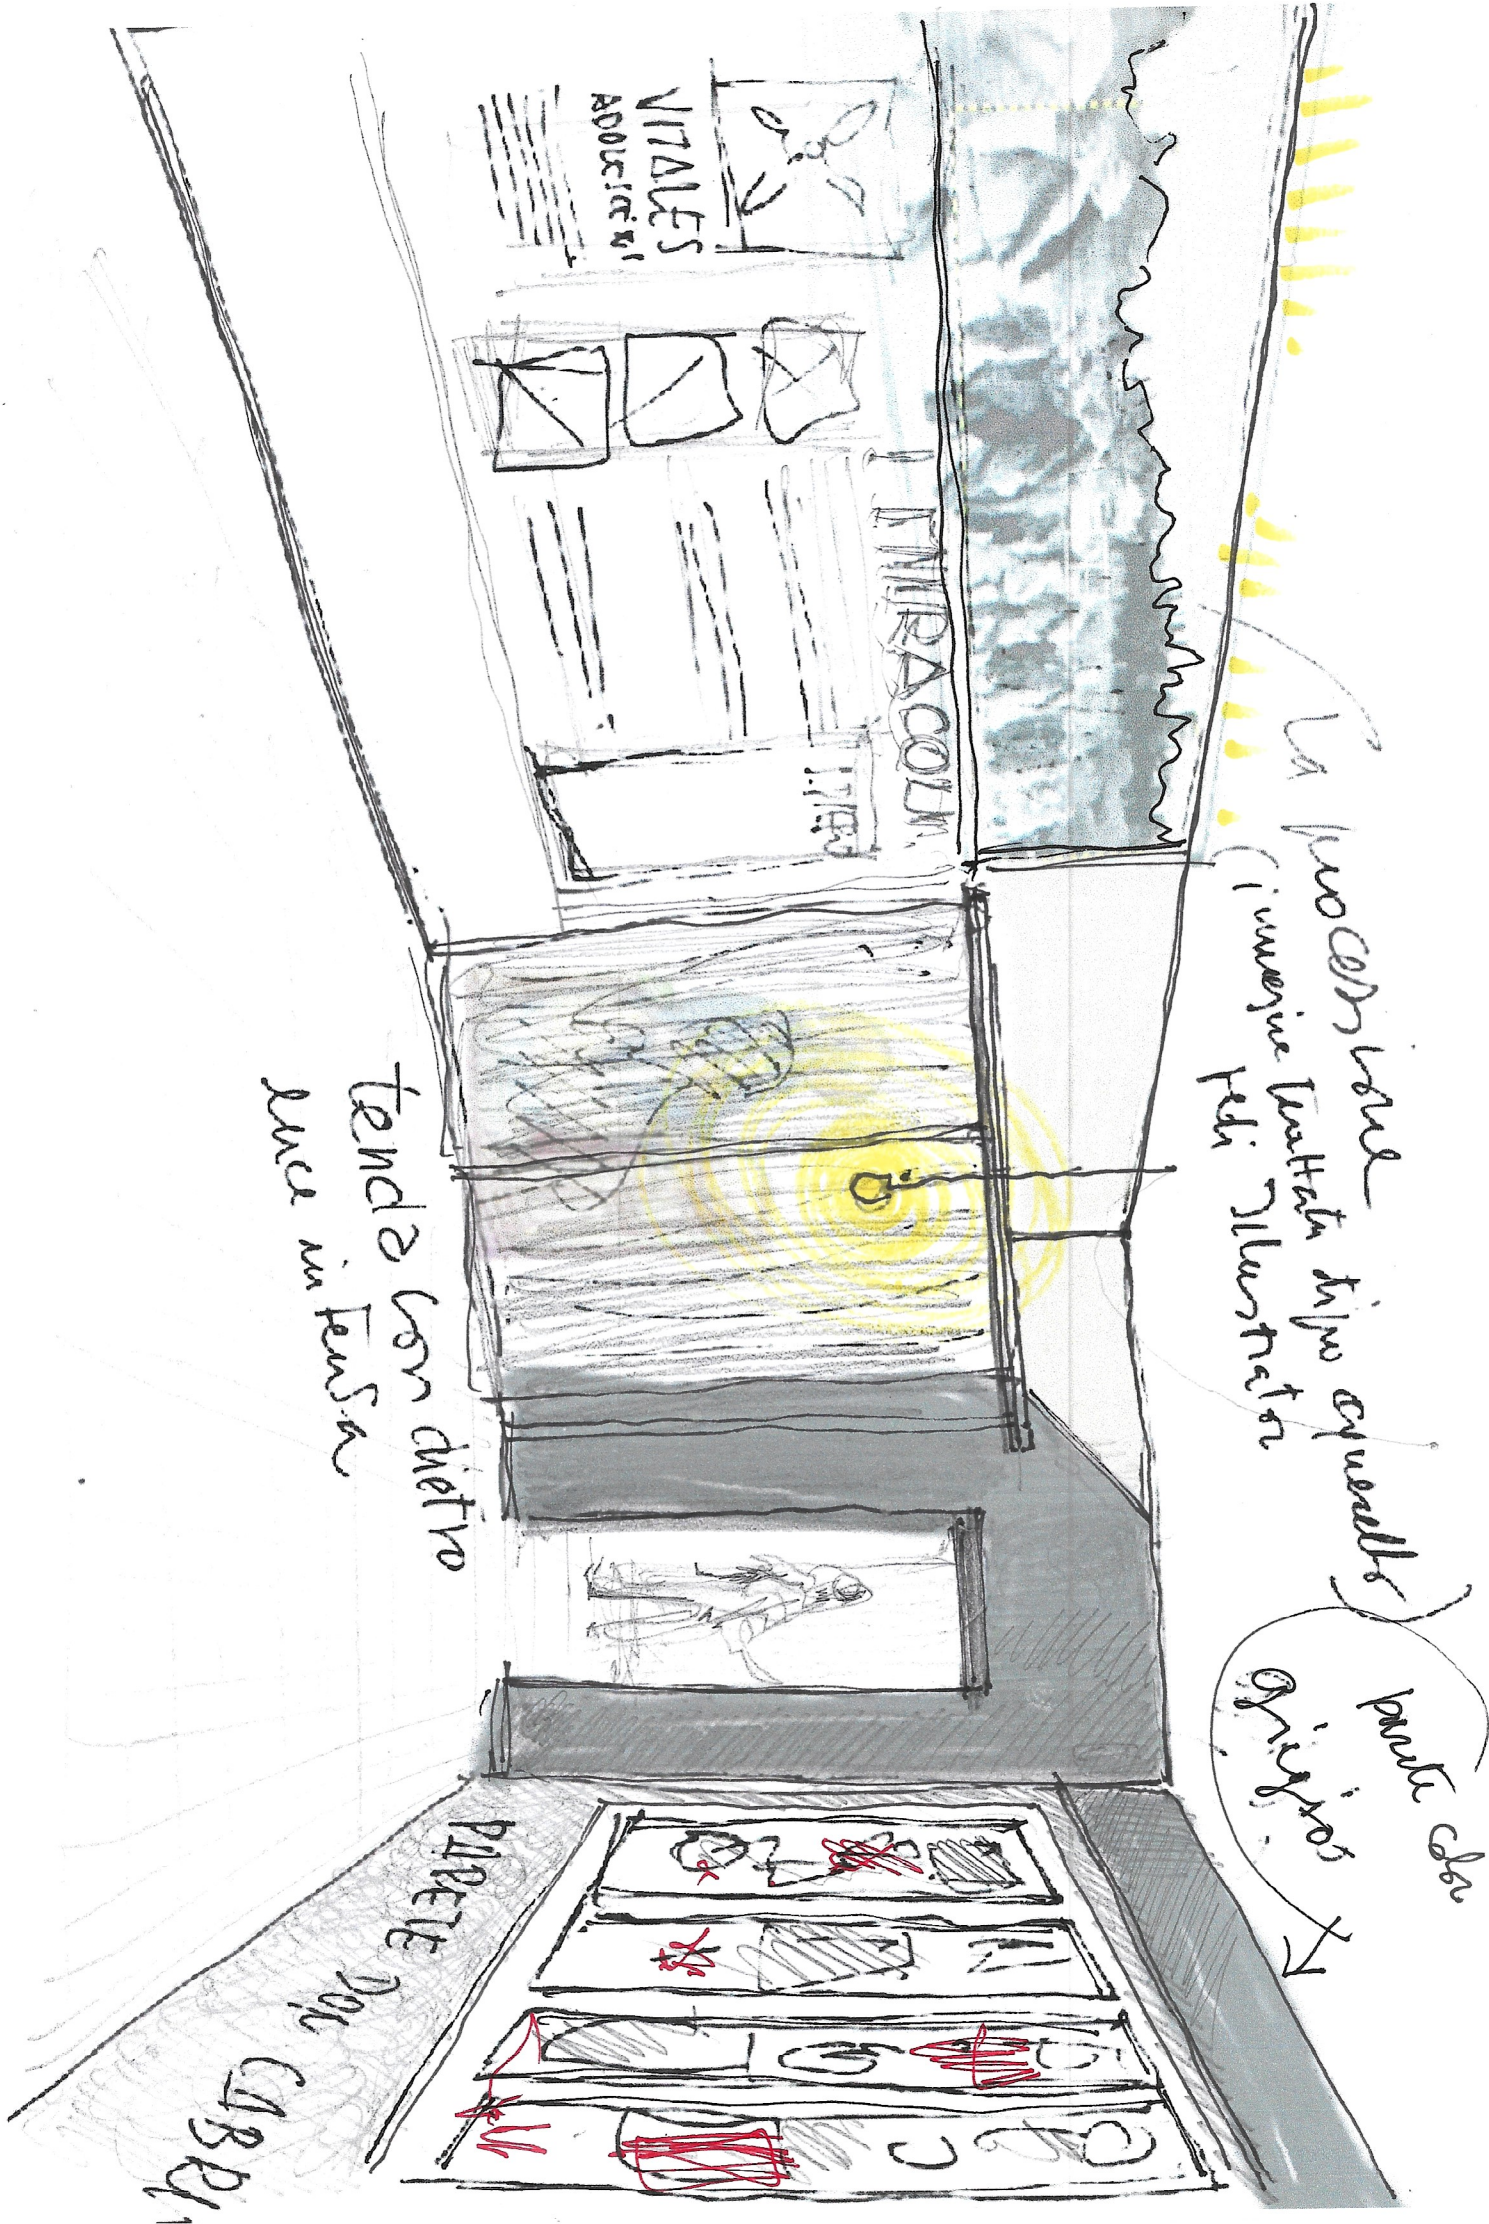 La processione
(immagine trattata tipo acquerello
vedi Illustrator
parete color
grigios
VITALES
I MIRACOLI
tenda con dietro
luce intensa
PARETE DEI CABREI